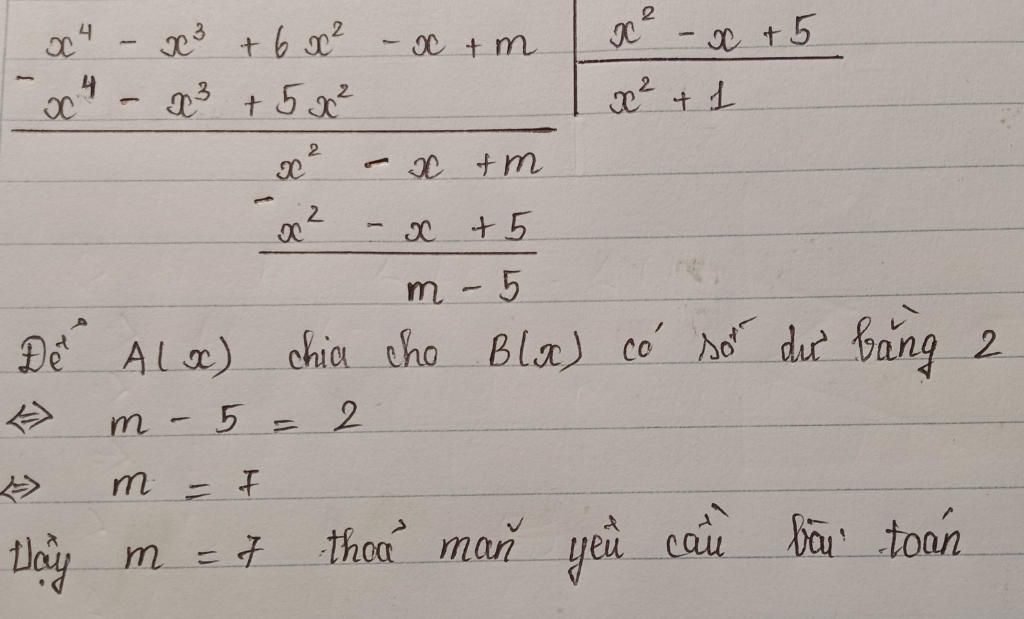 x⁴ - x³ + 6x² - x + m | x² - x + 5
- x⁴ - x³ + 5x² | x² + 1
x² - x + m
- x² - x + 5
m - 5
Để A(x) chia cho B(x) có số dư bằng 2
⇔ m - 5 = 2
⇔ m = 7
Vậy m = 7 thoả mãn yêu cầu bài toán